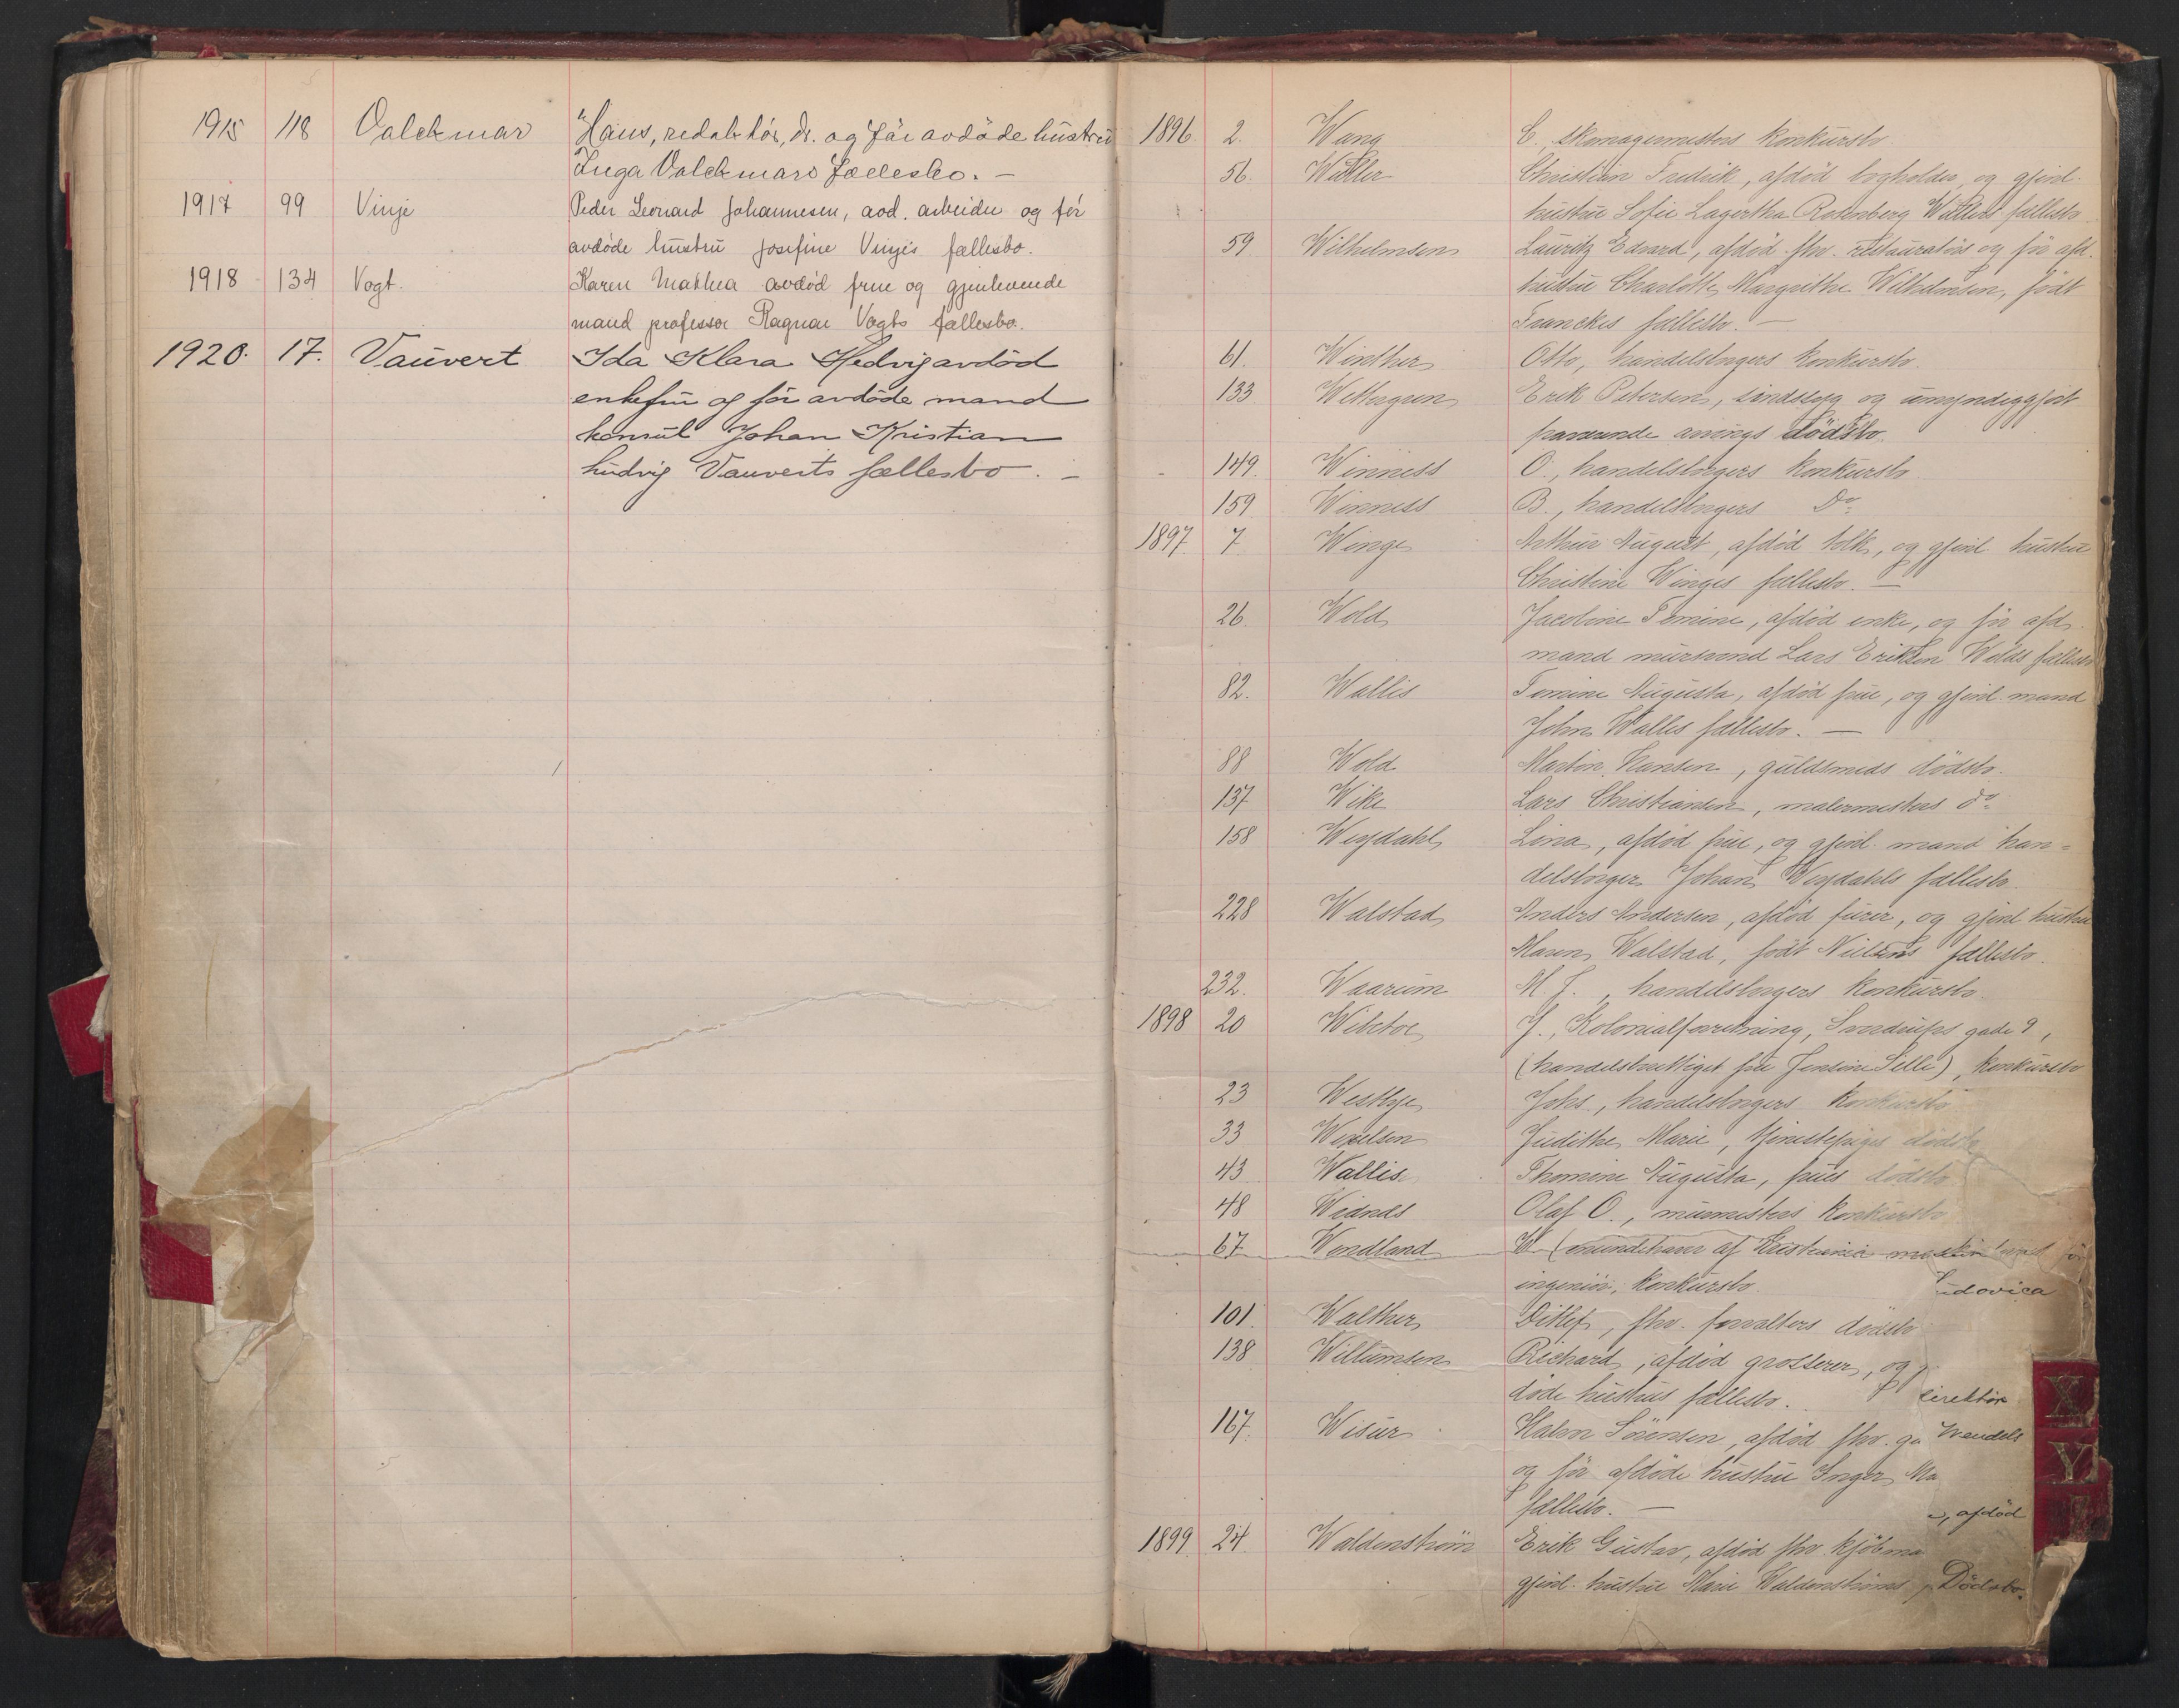 1915 118 Valckmar Hans, redaktör, dr. og för avdöde hustru
Inga Valckmars fællesbo. —
1917 99 Vinje Peder Leonard Johannesen, avd. arbeider og før
avdøde hustru Josefine Vinjes fællesbo.
1918 134 Vogt. Karen Mathea avdød frue og gjenlevende
mand professor Ragnar Vogts fællesbo.
1920. 17. Vauvert Ida Klara Hedvig avdöd
enkefru og för avdöde mand
konsul Johan Kristian
Ludvig Vauverts fællesbo. —
1896 2. Wang C., skomagermesters konkursbo.
56. Willer Christian Fredrik, afdöd bogholder, og gjenl.
hustru Sofie Lagertha Rosenberg Willers fællesbo.
59. Wilhelmsen Lauritz Edvard, afdöd fhv. restauratörs og för afd.
hustru Charlotte Margrethe Wilhelmsen, födt
Franckes fællesbo. —
61. Winther Otto, handelsborgers konkursbo.
133 Wettergren Erik Petersen, sindssyg og umyndiggjort
dödsbo.
149. Winness O., handelsborgers konkursbo
159 Winness B., handelsborgers Do
1897 7 Winge Arthur August, afdöd tolk, og gjenl. hustru
Christine Winges fællesbo. —
26 Wold Jacobine Temine, afdöd enke, og för afd.
mand mursvend Lars Eriksen Wolds fællesbo
82. Wallis Temine Augusta, afdöd frue, og gjenl. mand
John Wallis fællesbo. —
88 Wold Martin Hansen, guldsmeds dödsbo.
137 Wike Lars Christiansen, malermesters do
158 Weydahl Lina, afdöd frue, og gjenl. mand han-
delsborger Johan Weydahls fællesbo
228 Walstad Anders Andersen, afdöd furer, og gjenl. hustru
Maren Walstad, födt Nielsens fællesbo.
232. Waarum M. J., handelsborgers konkursbo.
1898 20 Wibetoe J., Kolonialforretning, Sverdrups gade 9,
(handelsberettiget frue Jensine Sille), konkursbo
23 Westbye Johs., handelsborgers konkursbo
33 Wexelsen Judithe Marie, tjenestepiges dödsbo
43 Wallis Thomine Augusta, frues dödsbo
48 Widnes Olaf O., murmesters konkursbo
67 Wendland W. (minдehaver af Kristiania
ingeniör, konkursbo. udovica
101. Walther Ditlef, fhv. forvalters dödsbo
138 Willumsen Richard, afdöd grosserer, og
döde hustrus fællesbo. direktör
167. Wisur Halvor Sörensen, afdöd fhv. ga Wendels
og för afdöde hustru Inger Ma
fællesbo. — afdöd
1899 24 Waldenström Erik Gustav, afdöd fhv. kjöbma
gjenl. hustru Marie Waldenströms Dödsbo.
X
Y